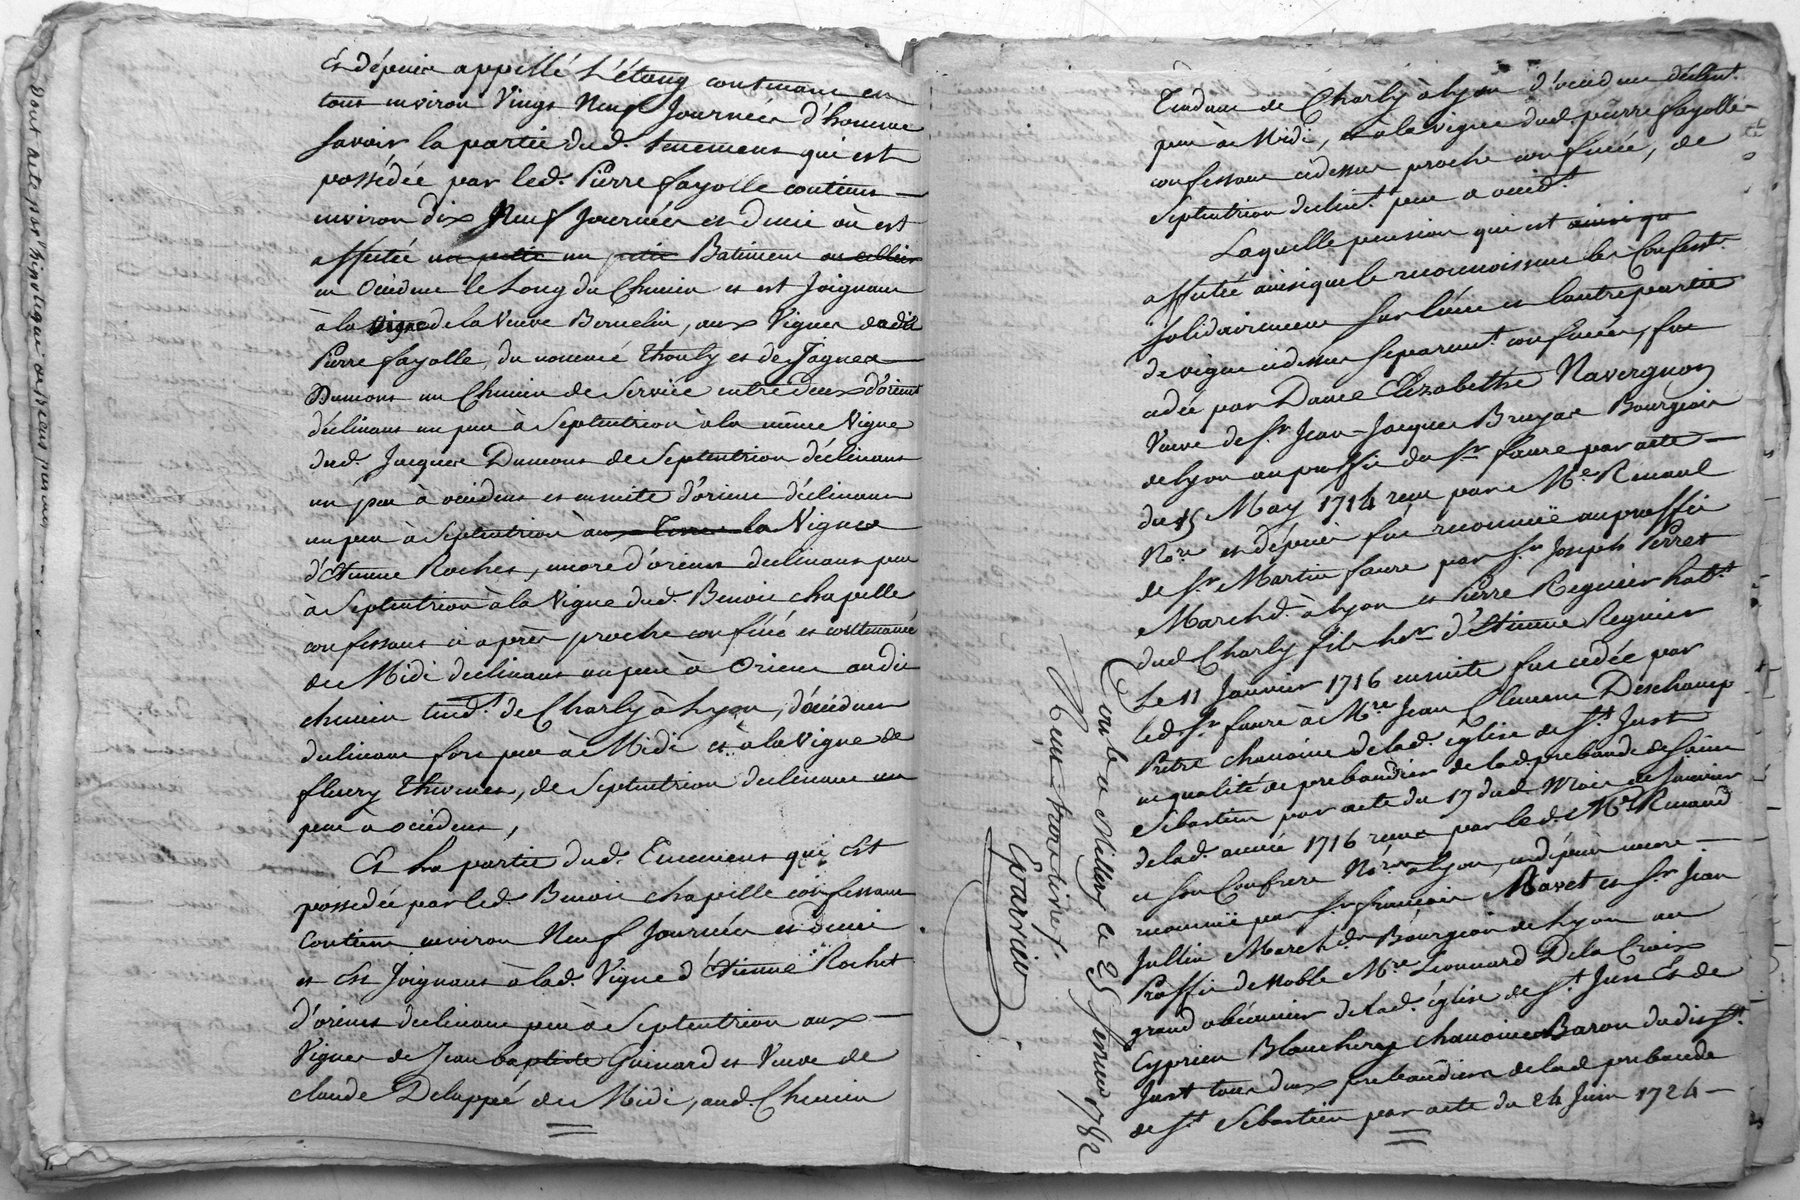 dont acte par hipotique
Et dépuis appellé L'étang contenant en
tout environ Vingt Neuf Journées d'homme
savoir la partie dud. tenement qui est
possédée par led. Pierre fayolle contient
environ dix Neuf Journées et demie où est
affectée un petit un petit Batiment ou cellier
en Occident le Long du Chemin et est Joignant
à la vigne de la Veuve aux Vignes dudit
Pierre fayolle, du nommé Thouly et de Jaques
Dumont un Chemin de Service entre deux d'orient
déclinant un peu à Septentrion à la même Vigne
dud. Jacques Dumont de Septentrion déclinant
un peu à occident et ensuite d'orient déclinant
un peu à Septentrion à la Vigne
d'Etienne Rochet, encore d'orient declinant peu
à Septentrion à la Vigne dud. Benoit chapelle
confessant ci après proche confiné et contenancé
de Midi declinant un peu à Orient audit
chemin tend.t de Charly à Lyon, d'occident
declinant fort peu à Midi et à la Vigne de
fleury Thivenet, de Septentrion declinant un
peu à occident,
Et La partie dud. Tenement qui est
possedée par led. Benoit chapelle confessant
Contient environ Neuf Journées et demie
et est Joignant à lad. Vigne d'Etienne Rochet
d'orient declinant peu à Septentrion aux
Vignes de Jean baptiste Guinard et Veuve de
claude Delappé de Midi, aud. Chemin
Tendant de Charly à Lyon d'occident déclin.t
peu à Midi, et à la vigne dud. pierre fayolle
confessant cidessus proche confinée, de
Septentrion declin.t peu a occid.t
Laquelle pension qui est ainsi qu
affectée ainsi que le reconnoissent les Confess.t
solidairement sur l'une et l'autre partie
de vigne cidessus separem.t confinées, fut
cedée par Dame Elizabethe Navergnon
Veuve de S.r Jean-Jacques Bruyas Bourgeois
de Lyon au proffit du S.r faure par acte
du 15 May 1714 reçu par M.e Renaud
N.re et dépuis fut reconnuë au proffit
de S.r Martin faure par S.r Joseph Perret
Marchd. à Lyon et Pierre Regnier hab.t
dud Charly fils h.er d'Etienne Regnier
Le 11 Janvier 1716 ensuite fut cedée par
led. S.r faure à M.re Jean Clement Deschamp
Prêtre chanoine de lad. église de S.t Just
en qualité de prebandier de lad prebande de Saint
Sébastien par acte du 17 dud. Mois de Janvier
de lad. année 1716 reçue par led. M.e Renaud
et son Confrere N.re à Lyon, et dépuis encore
reconnuë par S.r françois Mavet et S.r Jean
Jullien March.ds Bourgeois de Lyon au
Proffit de Noble M.re Leonnard De la Croix
grand obéancier de lad. église de S.t Just Et de
Cyprien Blanchery chanoine Baron dudit S.t
Just tous deux prebandiers de lad prebande
de S.t Sebastien par acte du 24 Juin 1724
Contle a Millery ce 25 1782
Reçu